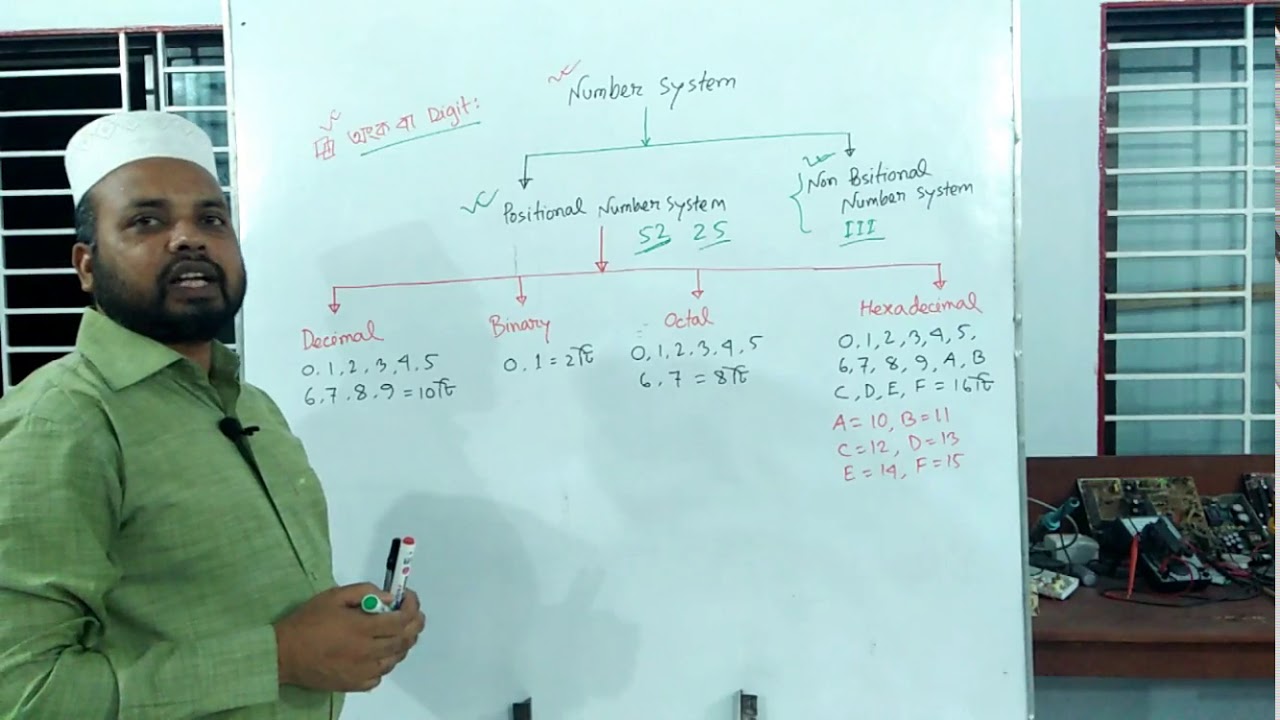 Number system
অংক বা Digit:
Positional Number system
52 25
Non Positional
Number system
III
Decimal
0,1,2,3,4,5
6,7,8,9 = 10টি
Binary
0,1 = 2টি
Octal
0,1,2,3,4,5
6,7 = 8টি
Hexadecimal
0,1,2,3,4,5,
6,7,8,9,A,B
C,D,E,F = 16টি
A=10, B=11
C=12, D=13
E=14, F=15